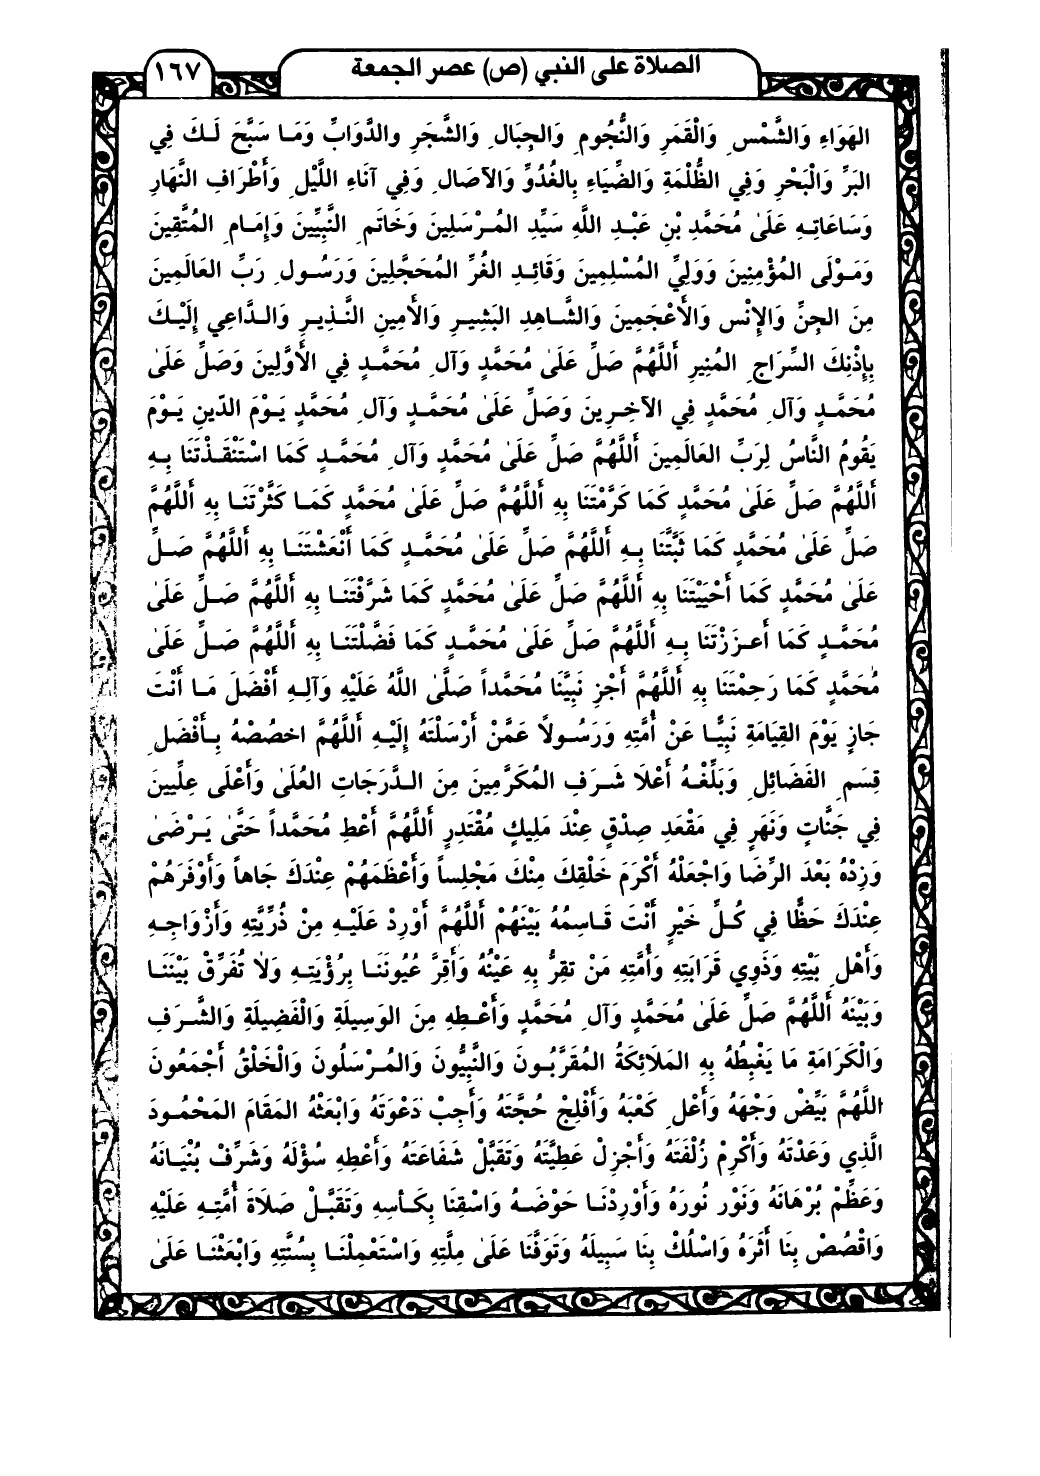 الصلاة على النبي (ص) عصر الجمعة
١٦٧
الهَوَاءِ وَالشَّمْسِ وَالْقَمَرِ وَالنُّجُومِ وَالجِبَالِ وَالشَّجَرِ والدَّوَابِّ وَمَا سَبَّحَ لَكَ فِي
البَرِّ وَالْبَحْرِ وَفِي الظُّلْمَةِ وَالضِّيَاءِ بِالغُدُوِّ وَالآصَالِ وَفِي آنَاءِ اللَّيْلِ وَأَطْرَافِ النَّهَارِ
وَسَاعَاتِهِ عَلَىٰ مُحَمَّدِ بْنِ عَبْدِ اللَّهِ سَيِّدِ المُرْسَلِينَ وَخَاتَمِ النَّبِيِّينَ وَإِمَامِ المُتَّقِينَ
وَمَوْلَى المُؤْمِنِينَ وَوَلِيِّ المُسْلِمِينَ وَقَائِدِ الغُرِّ المُحَجَّلِينَ وَرَسُولِ رَبِّ العَالَمِينَ
مِنَ الجِنِّ وَالإِنْسِ وَالأَعْجَمِينَ وَالشَّاهِدِ البَشِيرِ وَالأَمِينِ النَّذِيرِ وَالدَّاعِي إِلَيْكَ
بِإِذْنِكَ السِّرَاجِ المُنِيرِ أَللَّهُمَّ صَلِّ عَلَىٰ مُحَمَّدٍ وَآلِ مُحَمَّدٍ فِي الأَوَّلِينَ وَصَلِّ عَلَىٰ
مُحَمَّدٍ وَآلِ مُحَمَّدٍ فِي الآخِرِينَ وَصَلِّ عَلَىٰ مُحَمَّدٍ وَآلِ مُحَمَّدٍ يَوْمَ الدِّينِ يَوْمَ
يَقُومُ النَّاسُ لِرَبِّ العَالَمِينَ أَللَّهُمَّ صَلِّ عَلَىٰ مُحَمَّدٍ وَآلِ مُحَمَّدٍ كَمَا اسْتَنْقَذْتَنَا بِهِ
أَللَّهُمَّ صَلِّ عَلَىٰ مُحَمَّدٍ كَمَا كَرَّمْتَنَا بِهِ أَللَّهُمَّ صَلِّ عَلَىٰ مُحَمَّدٍ كَمَا كَثَّرْتَنَا بِهِ أَللَّهُمَّ
صَلِّ عَلَىٰ مُحَمَّدٍ كَمَا ثَبَّتَّنَا بِهِ أَللَّهُمَّ صَلِّ عَلَىٰ مُحَمَّدٍ كَمَا أَنْعَشْتَنَا بِهِ أَللَّهُمَّ صَلِّ
عَلَىٰ مُحَمَّدٍ كَمَا أَحْيَيْتَنَا بِهِ أَللَّهُمَّ صَلِّ عَلَىٰ مُحَمَّدٍ كَمَا شَرَّفْتَنَا بِهِ أَللَّهُمَّ صَلِّ عَلَىٰ
مُحَمَّدٍ كَمَا أَعزَزْتَنَا بِهِ أَللَّهُمَّ صَلِّ عَلَىٰ مُحَمَّدٍ كَمَا فَضَّلْتَنَا بِهِ أَللَّهُمَّ صَلِّ عَلَىٰ
مُحَمَّدٍ كَمَا رَحِمْتَنَا بِهِ أَللَّهُمَّ أَجْزِ نَبِيَّنَا مُحَمَّداً صَلَّىٰ اللَّهُ عَلَيْهِ وَآلِهِ أَفْضَلَ مَا أَنْتَ
جَازٍ يَوْمَ القِيَامَةِ نَبِيًّا عَنْ أُمَّتِهِ وَرَسُولاً عَمَّنْ أَرْسَلْتَهُ إِلَيْهِ أَللَّهُمَّ اخصُصْهُ بِأَفْضَلِ
قِسَمِ الفَضَائِلِ وَبَلِّغْهُ أَعْلَا شَرَفِ المُكَرَّمِينَ مِنَ الدَّرَجَاتِ العُلَىٰ وَأَعْلَى عِلِّيينَ
فِي جَنَّاتٍ وَنَهَرٍ فِي مَقْعَدِ صِدْقٍ عِنْدَ مَلِيكٍ مُقْتَدِرٍ أَللَّهُمَّ أَعْطِ مُحَمَّداً حَتَّىٰ يَرْضَىٰ
وَزِدْهُ بَعْدَ الرِّضَا وَاجْعَلْهُ أَكْرَمَ خَلْقِكَ مِنْكَ مَجْلِساً وَأَعْظَمَهُمْ عِنْدَكَ جَاهاً وَأَوْفَرَهُمْ
عِنْدَكَ حَظًّا فِي كُلِّ خَيْرٍ أَنْتَ قَاسِمُهُ بَيْنَهُمْ أَللَّهُمَّ أَوْرِدْ عَلَيْهِ مِنْ ذُرِّيَّتِهِ وَأَزْوَاجِهِ
وَأَهْلِ بَيْتِهِ وَذَوِي قَرَابَتِهِ وَأُمَّتِهِ مَنْ تَقِرُّ بِهِ عَيْنُهُ وَأَقِرَّ عُيُونَنَا بِرُؤْيَتِهِ وَلاَ تُفَرِّقْ بَيْنَنَا
وَبَيْنَهُ أَللَّهُمَّ صَلِّ عَلَىٰ مُحَمَّدٍ وَآلِ مُحَمَّدٍ وَأَعْطِهِ مِنَ الوَسِيلَةِ وَالْفَضِيلَةِ وَالشَّرَفِ
وَالْكَرَامَةِ مَا يَغْبِطُهُ بِهِ المَلَائِكَةُ المُقَرَّبُونَ وَالنَّبِيُّونَ وَالمُرْسَلُونَ وَالْخَلْقُ أَجْمَعُونَ
اللَّهُمَّ بَيِّضْ وَجْهَهُ وَأَعْلِ كَعْبَهُ وَأَفْلِجْ حُجَّتَهُ وَأَجِبْ دَعْوَتَهُ وَابْعَثْهُ المَقَامَ المَحْمُودَ
الَّذِي وَعَدْتَهُ وَأَكْرِمْ زُلْفَتَهُ وَأَجْزِلْ عَطِيَّتَهُ وَتَقَبَّلْ شَفَاعَتَهُ وَأَعْطِهِ سُؤْلَهُ وَشَرِّفْ بُنْيَانَهُ
وَعَظِّمْ بُرْهَانَهُ وَنَوِّر نُورَهُ وَأَوْرِدْنَا حَوْضَهُ وَاسْقِنَا بِكَأسِهِ وَتَقَبَّلْ صَلَاةَ أُمَّتِهِ عَلَيْهِ
وَاقْصُصْ بِنَا أَثَرَهُ وَاسْلُكْ بِنَا سَبِيلَهُ وَتَوَفَّنَا عَلَىٰ مِلَّتِهِ وَاسْتَعْمِلْنَا بِسُنَّتِهِ وَابْعَثْنَا عَلَىٰ